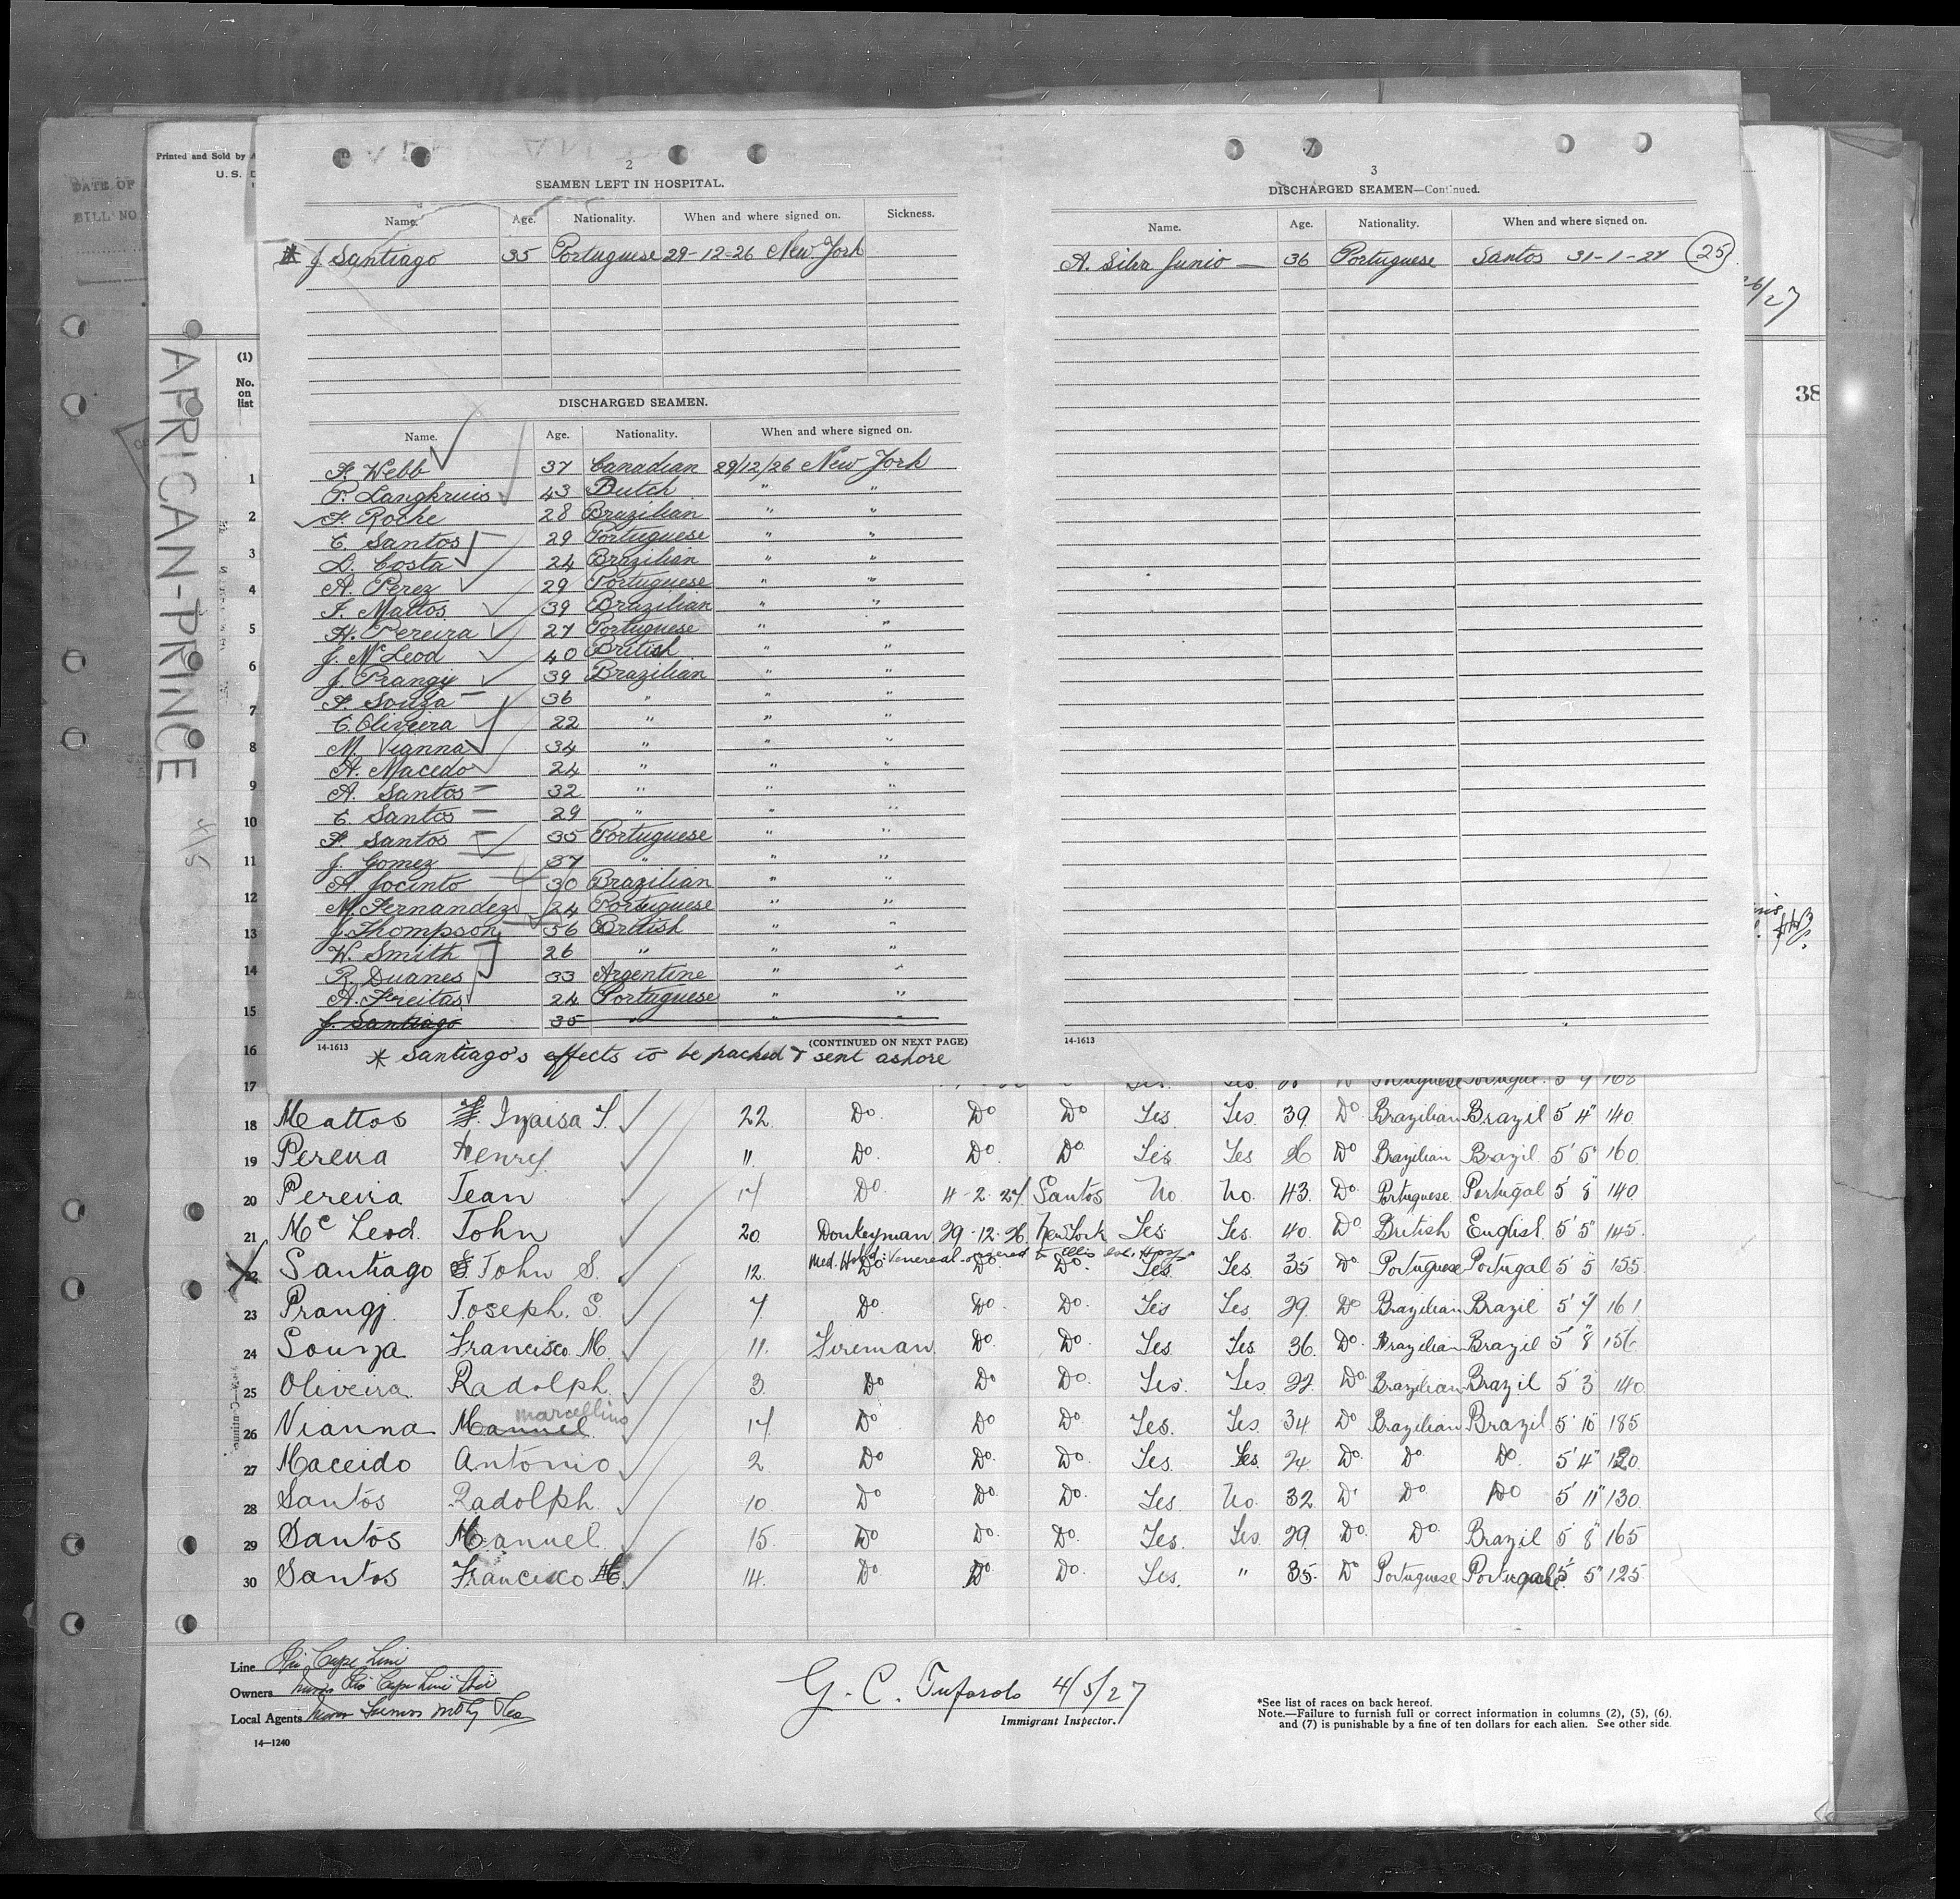 Printed and Sold by
U. S.
DATE OF
BILL NO.
AFRICAN-PRINCE
(1)
No.
on
list
38
26/27
2
SEAMEN LEFT IN HOSPITAL.
Name. Age. Nationality. When and where signed on. Sickness.
* J Santiago 35 Portuguese 29-12-26 New York
DISCHARGED SEAMEN.
Name. Age. Nationality. When and where signed on.
F. Webb 37 Canadian 29/12/26 New York
P. Langkruis 43 Dutch " "
F. Roche 28 Brazilian " "
C. Santos 29 Portuguese " "
D. Costa 24 Brazilian " "
A. Perez 29 Portuguese " "
I. Mattos 39 Brazilian " "
H. Pereira 27 Portuguese " "
J. McLeod 40 British " "
J. Prangy 39 Brazilian " "
F. Souza 36 " " "
C. Oliveira 22 " " "
M. Vianna 34 " " "
A. Macedo 24 " " "
A. Santos 32 " " "
C. Santos 29 " " "
F. Santos 35 Portuguese " "
J. Gomez 37 " " "
A. Jocinto 30 Brazilian " "
M. Fernandez 24 Portuguese " "
J. Thompson 56 British " "
W. Smith 26 " " "
R. Duanes 33 Argentine " "
A. Freitas 24 Portuguese " "
J. Santiago 35 " " "
14-1613 (CONTINUED ON NEXT PAGE)
* Santiago's effects to be packed & sent ashore
3
DISCHARGED SEAMEN—Continued.
Name. Age. Nationality. When and where signed on.
A. Silva Junio 36 Portuguese Santos 31-1-27 25
14-1613
1
2
3
4
5
6
7
8
9
10
11
12
13
14
15
16
17
18 Mattos Izaisa F. 22 Do. Do Do Yes Yes 39 Do Brazilian Brazil 5 4" 140
19 Pereira Henry 11. Do. Do. Do. Yes Yes 26 Do Brazilian Brazil 5' 5" 160
20 Pereira Jean 17 Do 4-2-27 Santos No. No. 43. Do. Portuguese Portugal 5' 8" 140
21 Mc Leod. John 20. Donkeyman 29-12-26 New York Yes Yes. 40. Do British English 5' 5" 145.
Med. Hold: Venereal-ordered to Ellis Isl. Hosp
22 Santiago John S. 12. Do Do Do. Yes Yes. 35 Do Portuguese Portugal 5 5 155
23 Prangj. Joseph. S. 7 Do. Do. Do. Yes Yes. 29. Do Brazilian Brazil 5' 7 161
24 Souza Francisco M. 11. Fireman Do. Do. Yes Yes. 36. Do. Brazilian Brazil 5' 8" 156
25 Oliveira. Radolph. 3. Do Do Do. Yes. Yes. 22. Do Brazilian Brazil 5' 3" 140
marcellino
26 Vianna Manuel 17. Do Do Do Yes. Yes. 34 Do Brazilian Brazil 5' 10" 185
27 Maceido Antonio 2 Do Do. Do. Yes Yes. 24 Do. Do. Do. 5' 4" 120
28 Santos Radolph. 10. Do Do. Do. Yes. No. 32. Do Do Do 5' 11" 130.
29 Santos Manuel 15. Do Do. Do. Yes. Yes. 29. Do. Do. Brazil 5' 8" 165
30 Santos Francisco 14. Do Do. Do. Yes. " 35. Do Portuguese Portugal 5' 5" 125
Line
Owners
Local Agents
14—1240
G. C. Tufarolo 4/5/27
Immigrant Inspector.
*See list of races on back hereof.
Note.—Failure to furnish full or correct information in columns (2), (5), (6),
and (7) is punishable by a fine of ten dollars for each alien. See other side.